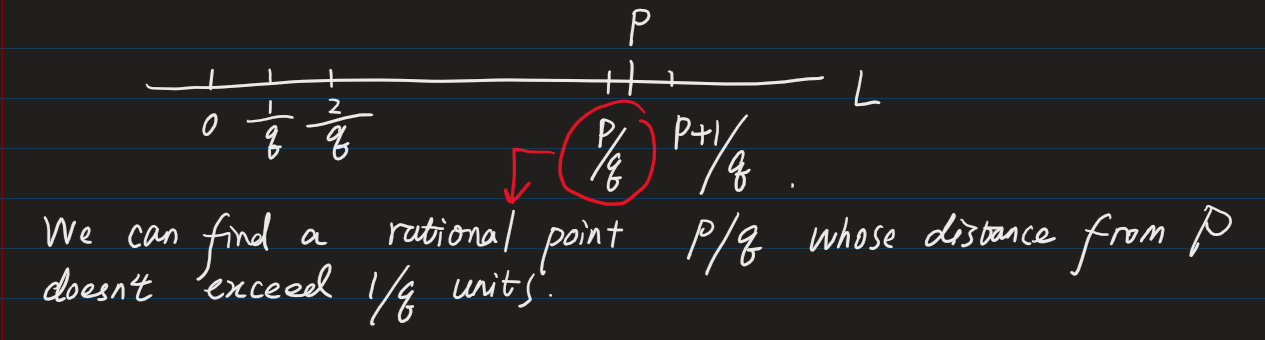 P
L
0 1/q 2/q P/q P+1/q .
We can find a rational point P/q whose distance from P
doesn't exceed 1/q units.